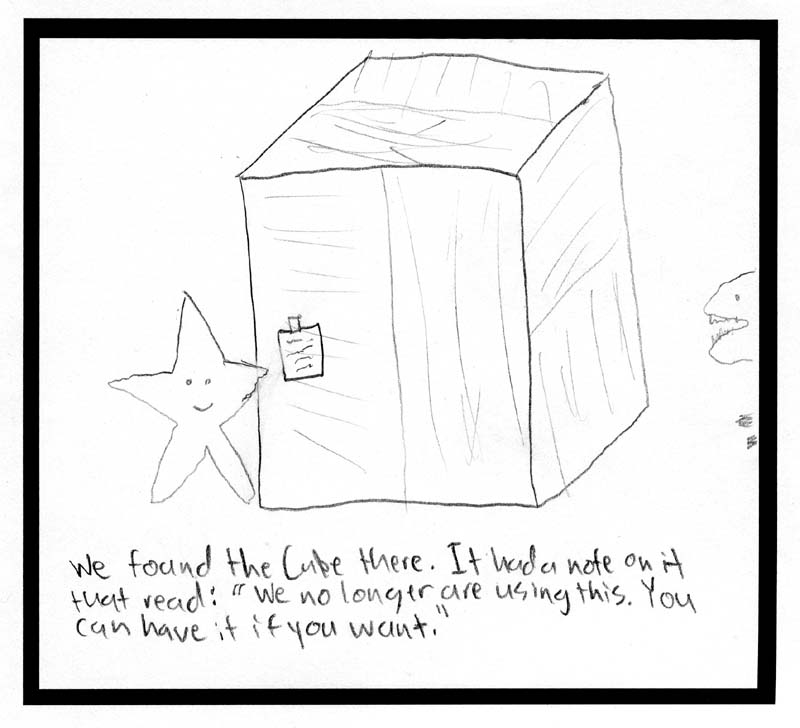 We found the Cube there. It had a note on it
that read: "We no longer are using this. You
can have it if you want."